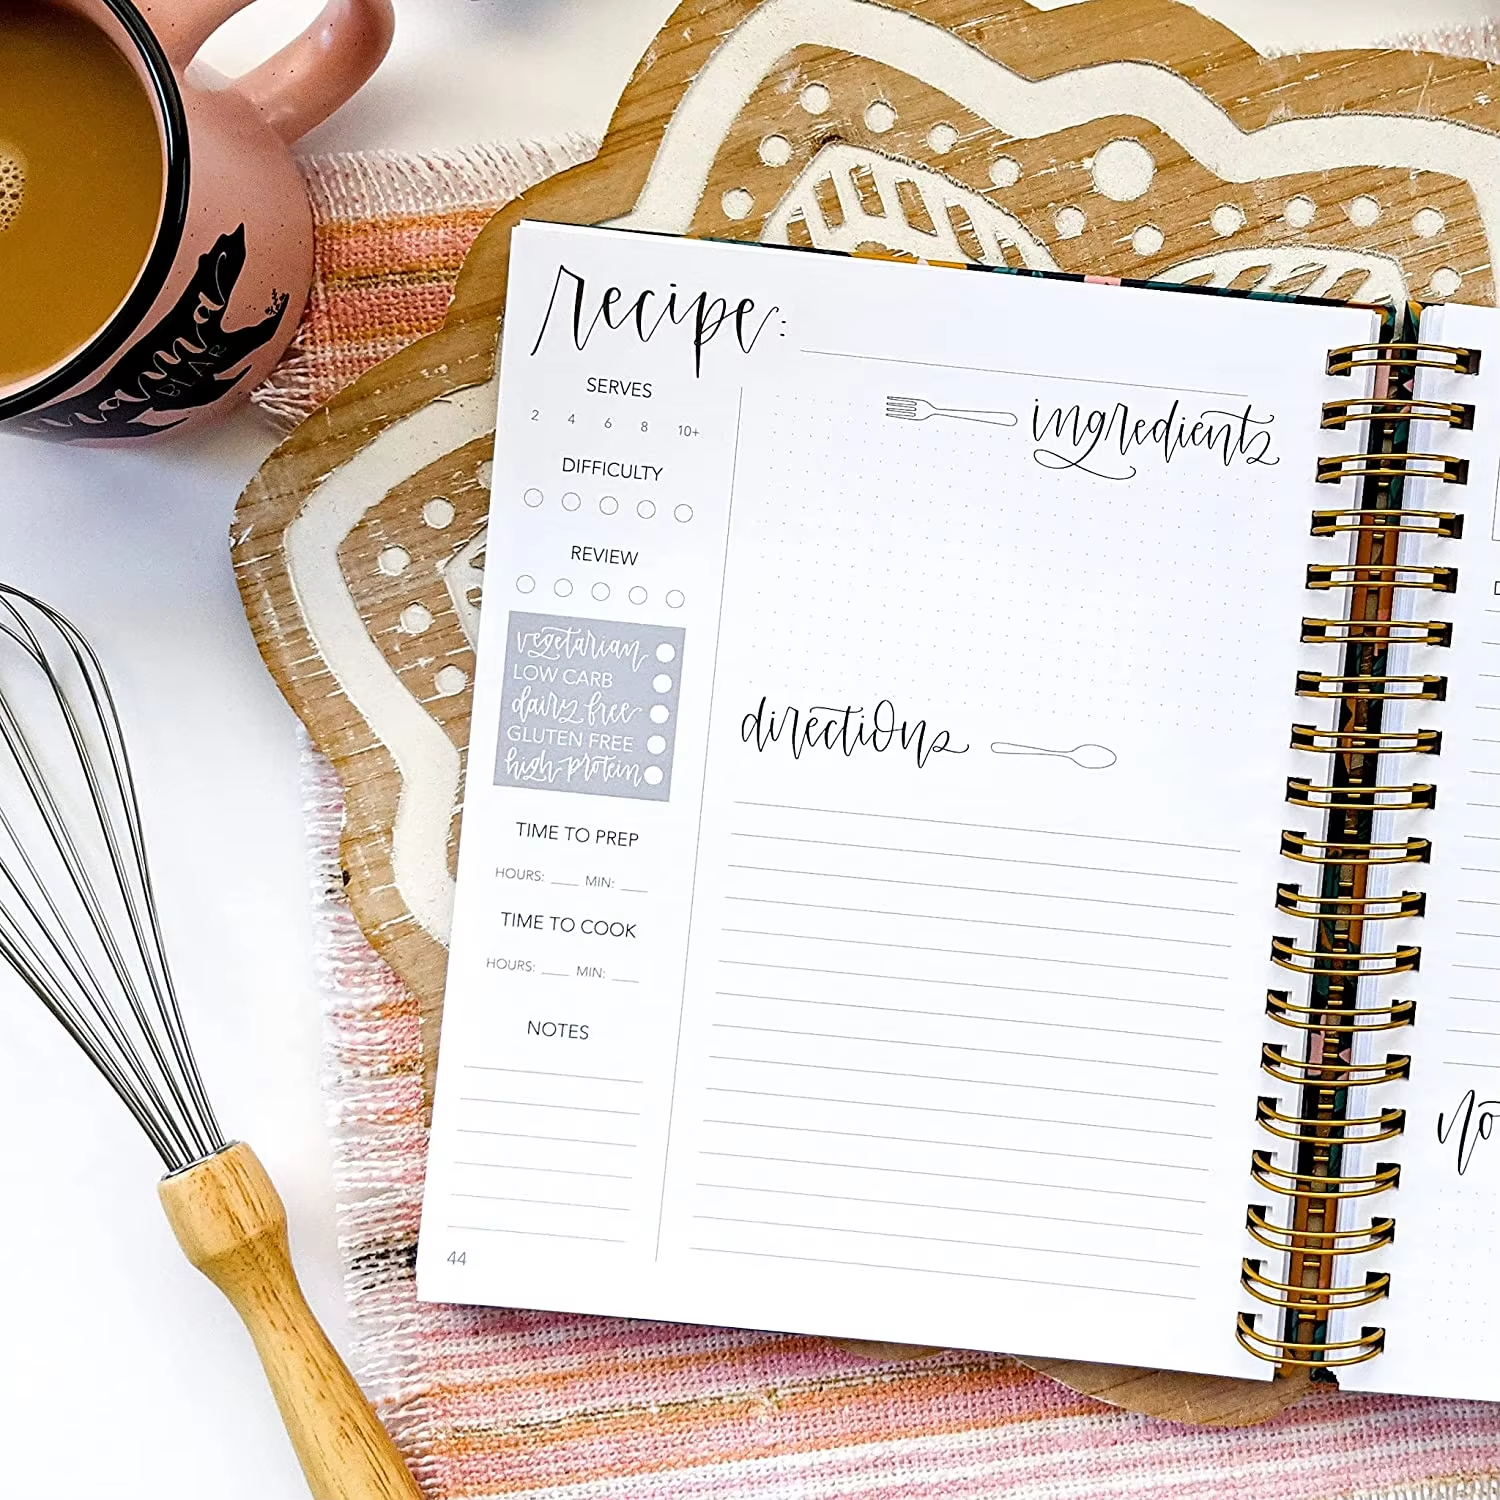 mama
BEAR
recipe:
SERVES
2 4 6 8 10+
DIFFICULTY
REVIEW
vegetarian
LOW CARB
dairy free
GLUTEN FREE
high-protein
TIME TO PREP
HOURS: ___ MIN: ___
TIME TO COOK
HOURS: ___ MIN: ___
NOTES
44
ingredients
directions
no